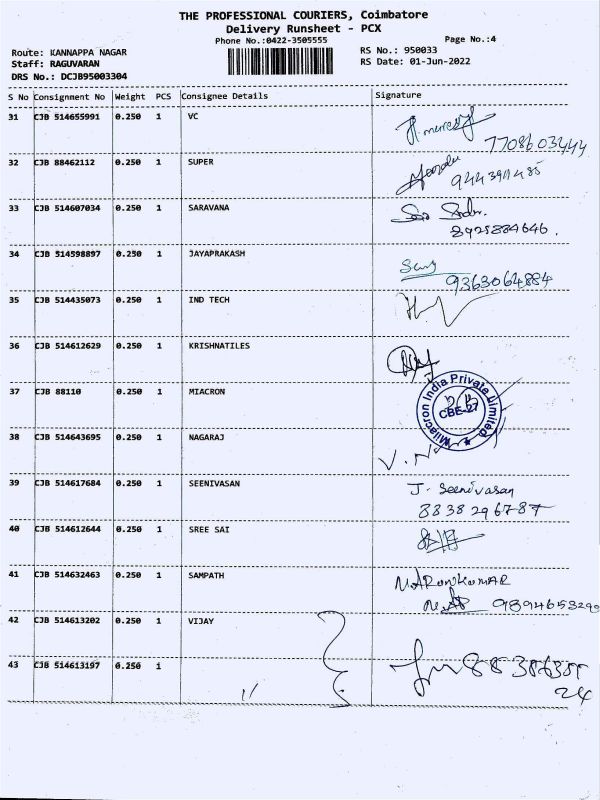 THE PROFESSIONAL COURIERS, Coimbatore
Delivery Runsheet - PCX
Phone No.:0422-3505555
Page No.:4
Route: KANNAPPA NAGAR
RS No.: 950033
Staff: RAGUVARAN
RS Date: 01-Jun-2022
DRS No.: DCJB95003304
S No Consignment No Weight PCS Consignee Details Signature
31 CJB 514655991 0.250 1 VC
7708603444
32 CJB 88462112 0.250 1 SUPER
9443911485
33 CJB 514607034 0.250 1 SARAVANA
8925884646.
34 CJB 514598897 0.250 1 JAYAPRAKASH
9363064884
35 CJB 514435073 0.250 1 IND TECH
36 CJB 514612629 0.250 1 KRISHNATILES
37 CJB 88110 0.250 1 MIACRON
Milacron India Private Limited
CBE-27
38 CJB 514643695 0.250 1 NAGARAJ
39 CJB 514617684 0.250 1 SEENIVASAN J. Seenivasan
8838296787
40 CJB 514612644 0.250 1 SREE SAI
41 CJB 514632463 0.250 1 SAMPATH
9894653290
42 CJB 514613202 0.250 1 VIJAY
43 CJB 514613197 0.250 1
24